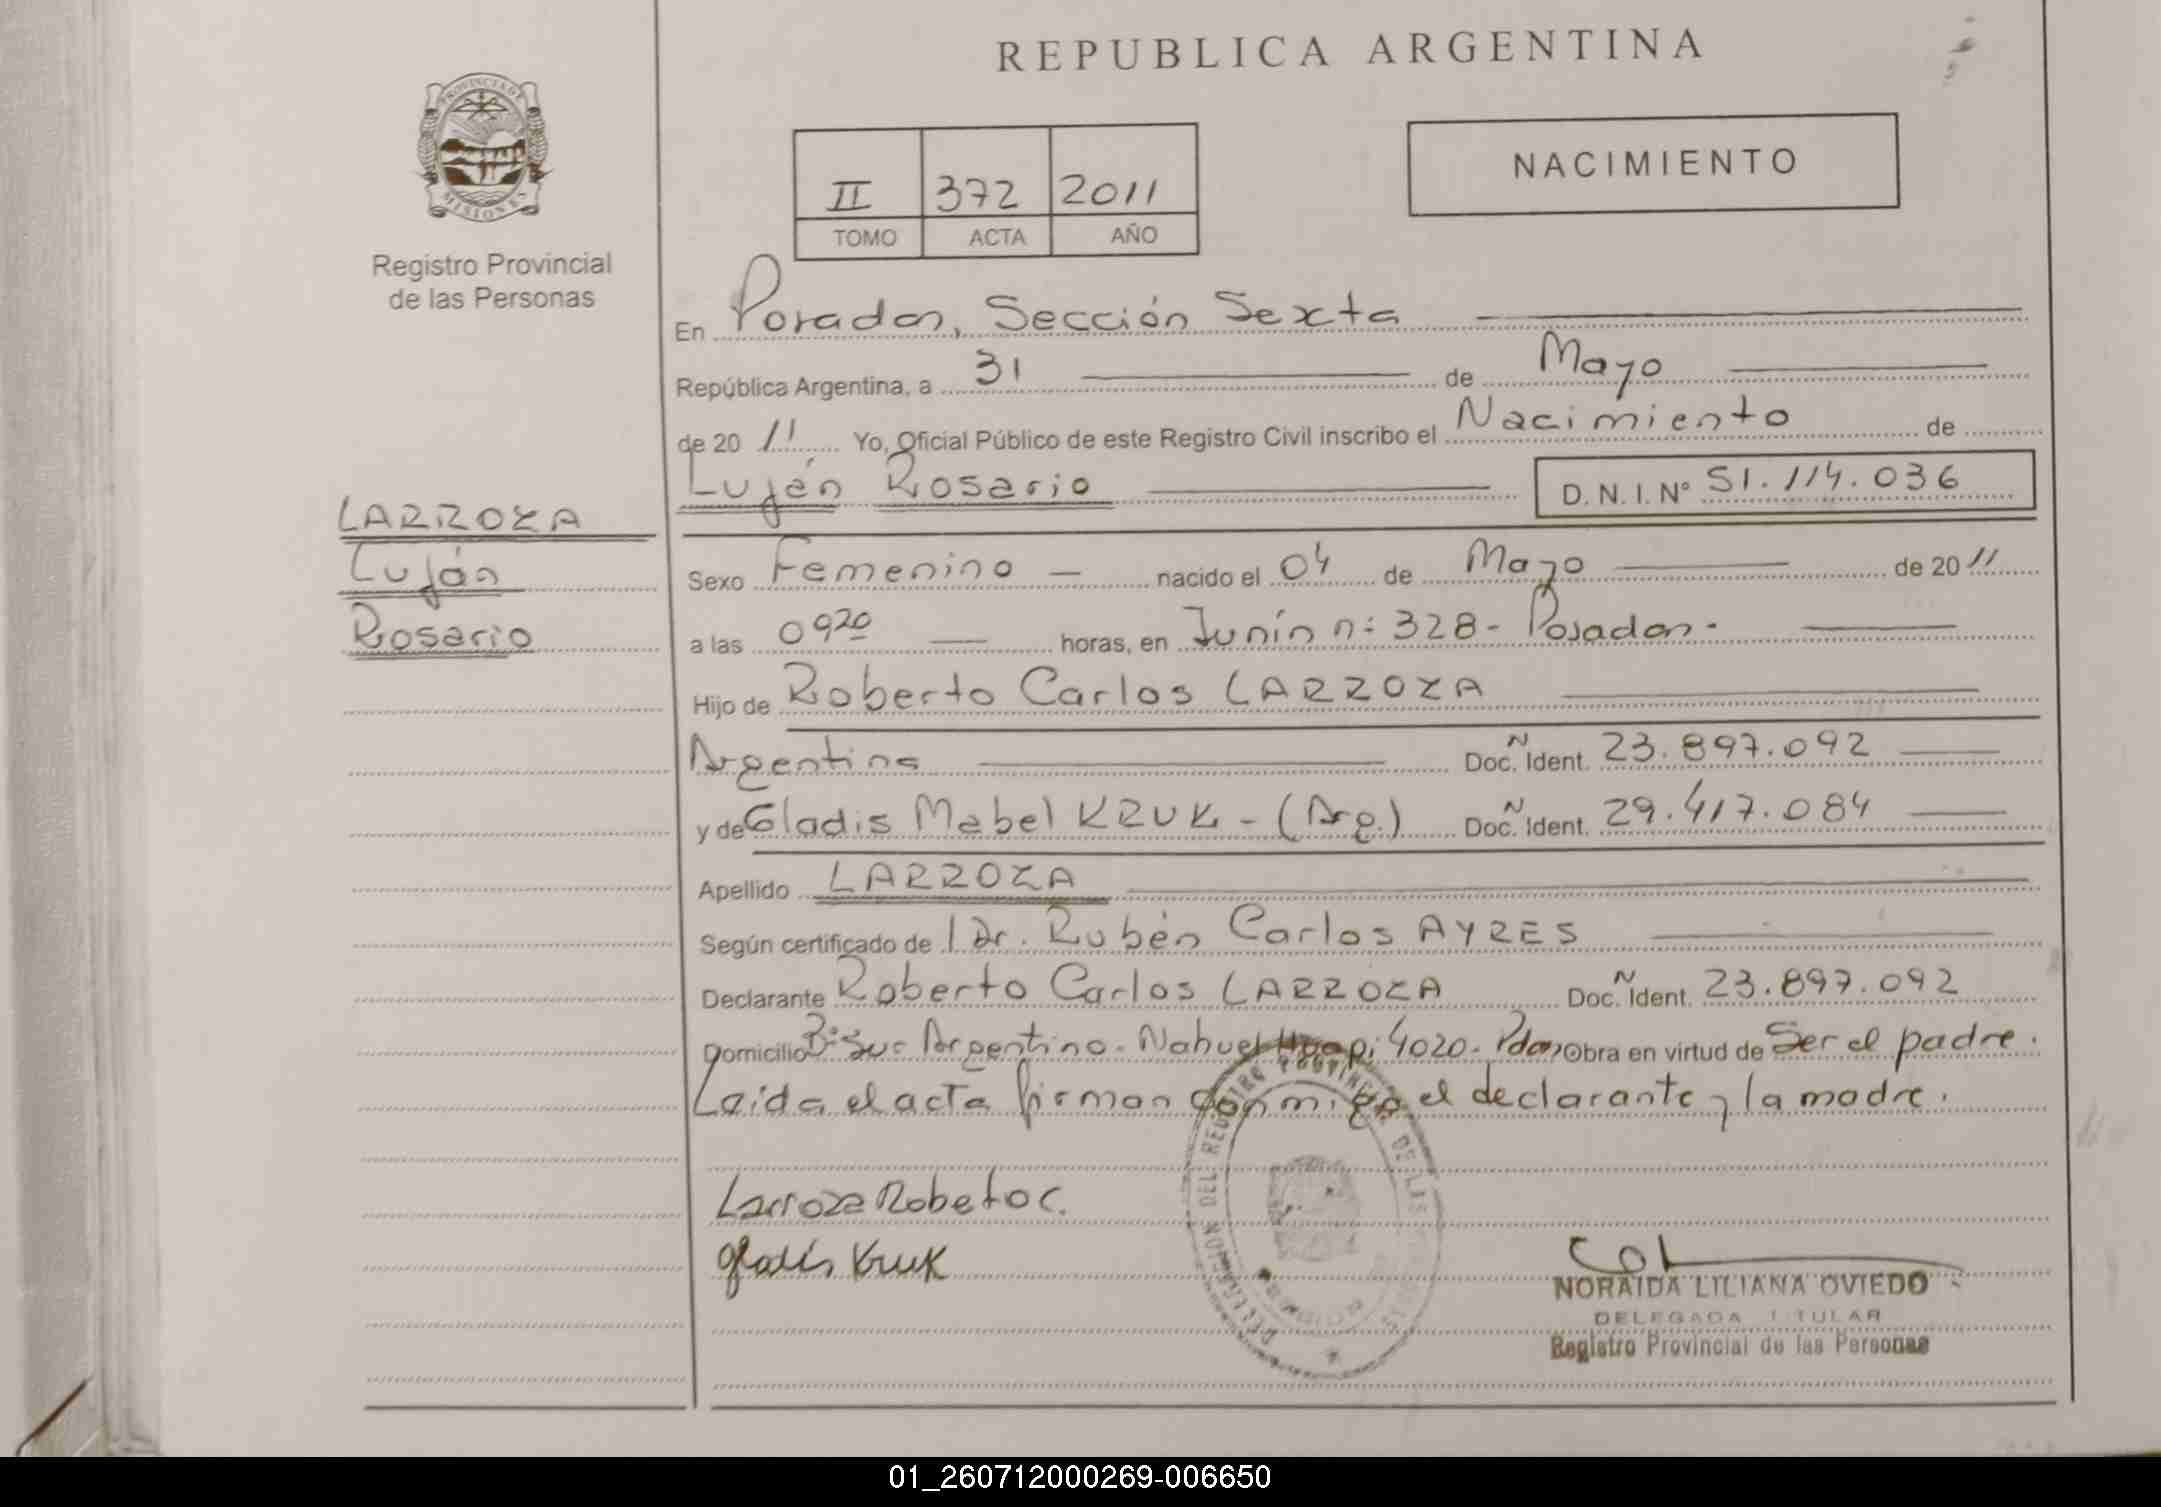 REPUBLICA ARGENTINA
PROVINCIA DE
MISIONES
Registro Provincial
de las Personas
II 372 2011
TOMO ACTA AÑO
NACIMIENTO
En Posadas, Sección Sexta
República Argentina, a 31 de Mayo
de 20 11 Yo, Oficial Público de este Registro Civil inscribo el Nacimiento de
Luján Rosario D.N.I. Nº 51.114.036
LARROZA
Luján
Rosario
Sexo Femenino nacido el 04 de Mayo de 20 11
a las 0920 horas, en Junín nº 328 - Posadas -
Hijo de Roberto Carlos LARROZA
Argentina Doc. Ident. N 23.897.092
y de Gladis Mabel KRUK - (Arg.) Doc. Ident. N 29.417.084
Apellido LARROZA
Según certificado de l Dr. Rubén Carlos AYRES
Declarante Roberto Carlos LARROZA Doc. Ident. N 23.897.092
Domicilio Bº Sur Argentino - Nahuel Huapi 4020 - Pdas Obra en virtud de Ser el padre.
Leida el acta firman conmigo el declarante y la madre.
Larroza Robeto C.
gladis Kruk
DELEGACION DEL REGISTRO PROVINCIAL DE LAS
NORAIDA LILIANA OVIEDO
DELEGADA TITULAR
Registro Provincial de las Personas
01_260712000269-006650